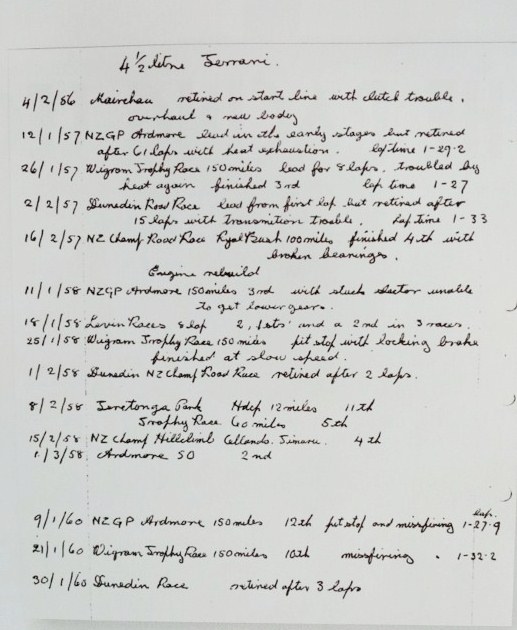 4 1/2 litre Ferrari.
4/2/56 Mairehau retired on start line with clutch trouble.
overhaul & new body
12/1/57 NZGP Ardmore lead in the early stages but retired
after 61 laps with heat exhaustion. lap time 1-29-2
26/1/57 Wigram Trophy Race 150 miles lead for 8 laps, troubled by
heat again finished 3rd lap time 1-27
2/2/57 Dunedin Road Race lead from first lap but retired after
15 laps with transmition trouble. Lap time 1-33
16/2/57 NZ Champ Road Race Ryal Bush 100 miles finished 4th with
broken bearings.
Engine rebuild
11/1/58 NZGP Ardmore 150 miles 3rd with stuck selector unable
to get lower gears.
18/1/58 Levin Races 8 lap 2, 1sts' and a 2nd in 3 races.
25/1/58 Wigram Trophy Race 150 miles pit stop with locking brake
finished at slow speed.
1/2/58 Dunedin NZ Champ Road Race retired after 2 laps.
8/2/58 Teretonga Park Hdcp 12 miles 11th
Trophy Race 60 miles 5th
15/2/58 NZ Champ Hillclimb Timaru. 4th
1/3/58 Ardmore 50 2nd
Lap.
9/1/60 NZGP Ardmore 150 miles 12th pit stop and missfiring 1-27-9
21/1/60 Wigram Trophy Race 150 miles 10th missfiring. 1-32-2
30/1/60 Dunedin Race retired after 3 laps